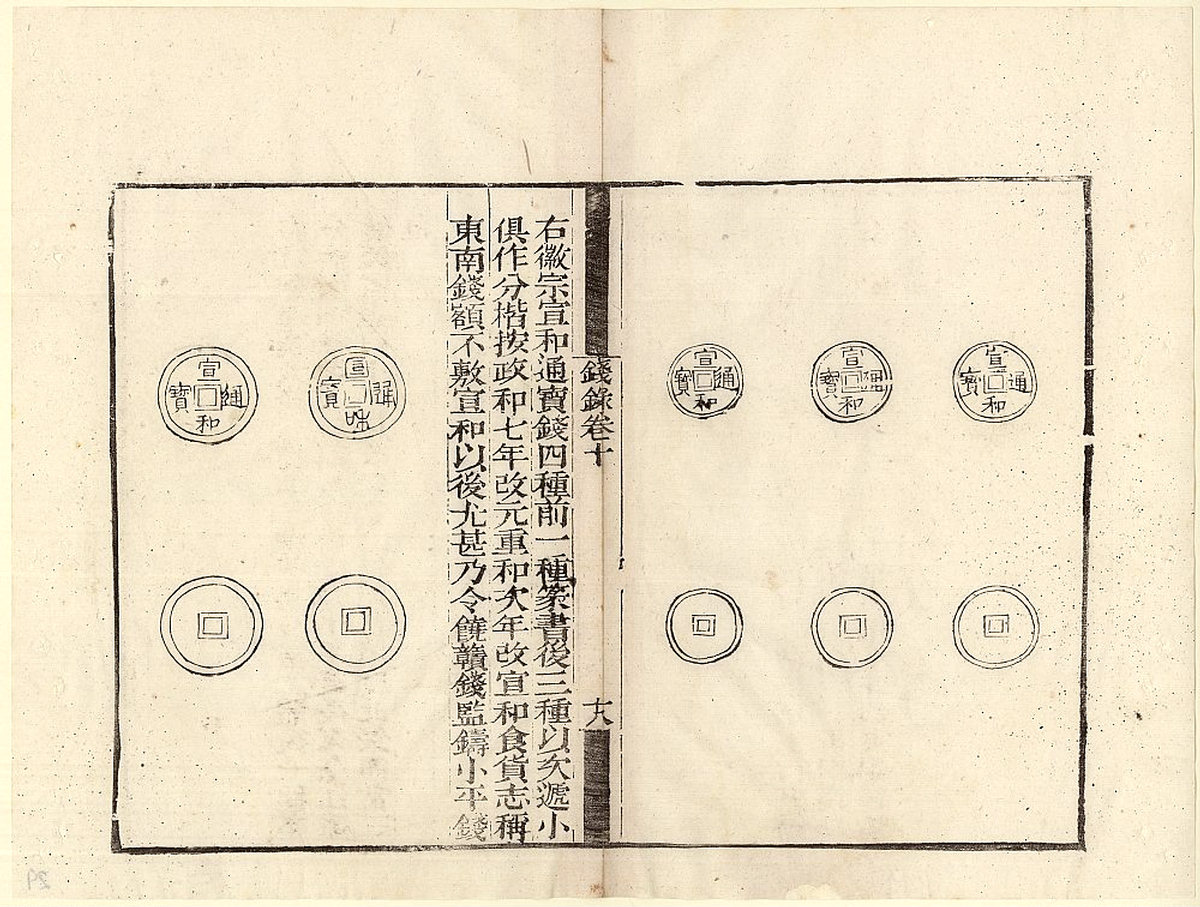 宣和通寶
宣和通寶
宣和通寶
錢錄卷十
十八
右徽宗宣和通寶錢四種前一種篆書後三種以次遞小
俱作分楷按政和七年改元重和次年改宣和食貨志稱
東南錢額不敷宣和以後尤甚乃令饒贛錢監鑄小平錢
宣和通寶
宣和通寶
29